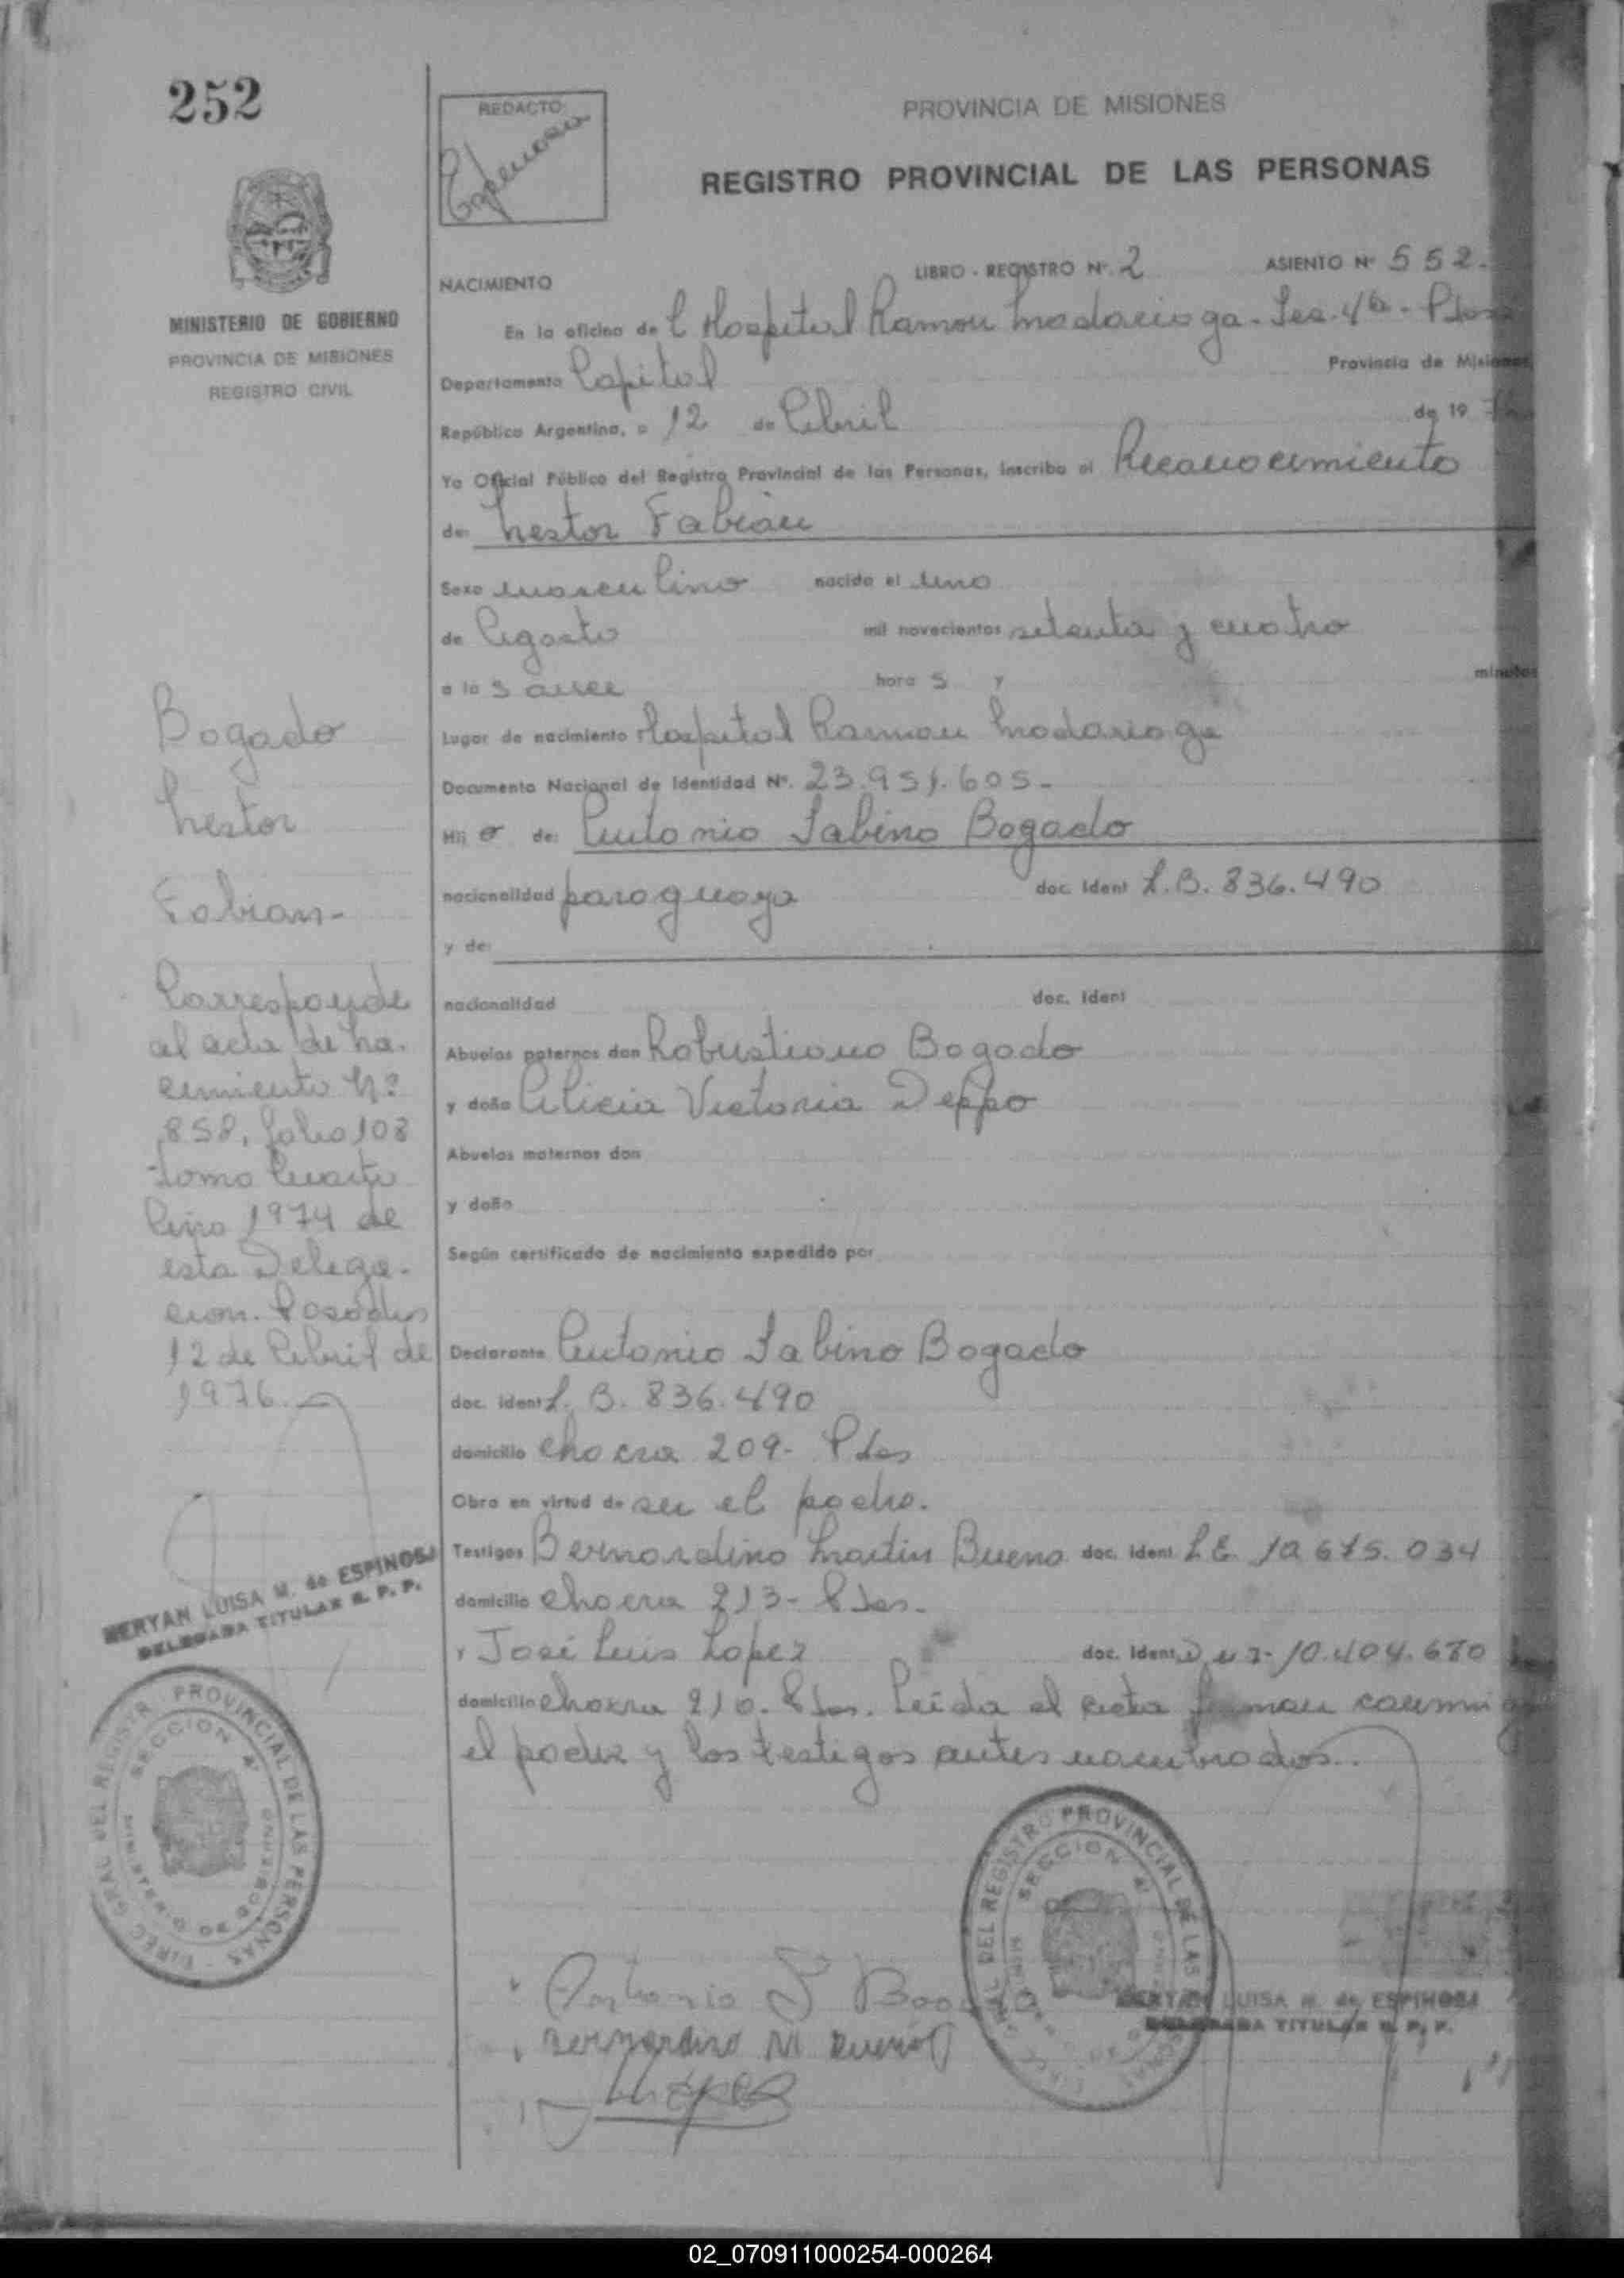 252
REDACTO:
PROVINCIA DE MISIONES
REGISTRO PROVINCIAL DE LAS PERSONAS
MINISTERIO DE GOBIERNO
PROVINCIA DE MISIONES
REGISTRO CIVIL
NACIMIENTO
LIBRO - REGISTRO Nº. 2 ASIENTO Nº 552.
En la oficina de Hospital Ramon Madariaga - Sec. 4ta - Pdas
Departamento Capital Provincia de Misiones,
República Argentina, a 12 de Abril de 19
Yo Oficial Público del Registro Provincial de las Personas, inscribo el Reconocimiento
de: Nestor Fabian
Sexo masculino nacido el uno
de Agosto mil novecientos setenta y cuatro
a la s hora s y minutos
Lugar de nacimiento Hospital Ramon Madariaga
Documento Nacional de Identidad Nº. 23.951.605-
Hij o de: Antonio Sabino Bogado
nacionalidad paraguaya doc. Ident L.B. 836.490
y de:
nacionalidad doc. Ident
Abuelos paternos don Robustiano Bogado
y doña Alicia Victoria Deppo
Abuelos maternos don
y doña
Según certificado de nacimiento expedido por
Declarante Antonio Sabino Bogado
doc. Ident L. B. 836.490
domicilio chacra 209- Pdas
Obra en virtud de ser el padre.
Testigos Bernardino Martin Bueno doc. Ident L.E. 10.675.034
domicilio chacra 213- Pdas.
y José Luis Lopez doc. Ident D.N.I- 10.404.680
domicilio chacra 210. Pdas. Leida el acta firman conmigo
el padre y los testigos antes nombrados..
Bogado
Nestor
Fabian-
Corresponde
al acta de na-
cimiento Nº
858, folio 108
tomo Cuarto
Año 1974 de
esta Delega-
cion. Posadas
12 de Abril de
1976.
MERYAN LUISA M. de ESPINOSA
DELEGADA TITULAR R. P. P.
DIREC. GRAL DEL REGISTR. PROVINCIAL DE LAS PERSONAS
SECCION 4ª
MINISTERIO DE GOBIERNO
Antonio S Bogado
Bernardino M Bueno
GRAL DEL REGISTRO PROVINCIAL DE LAS PERSONAS
SECCION 4ª
MERYAN LUISA M. de ESPINOSA
DELEGADA TITULAR R. P. P.
02_070911000254-000264